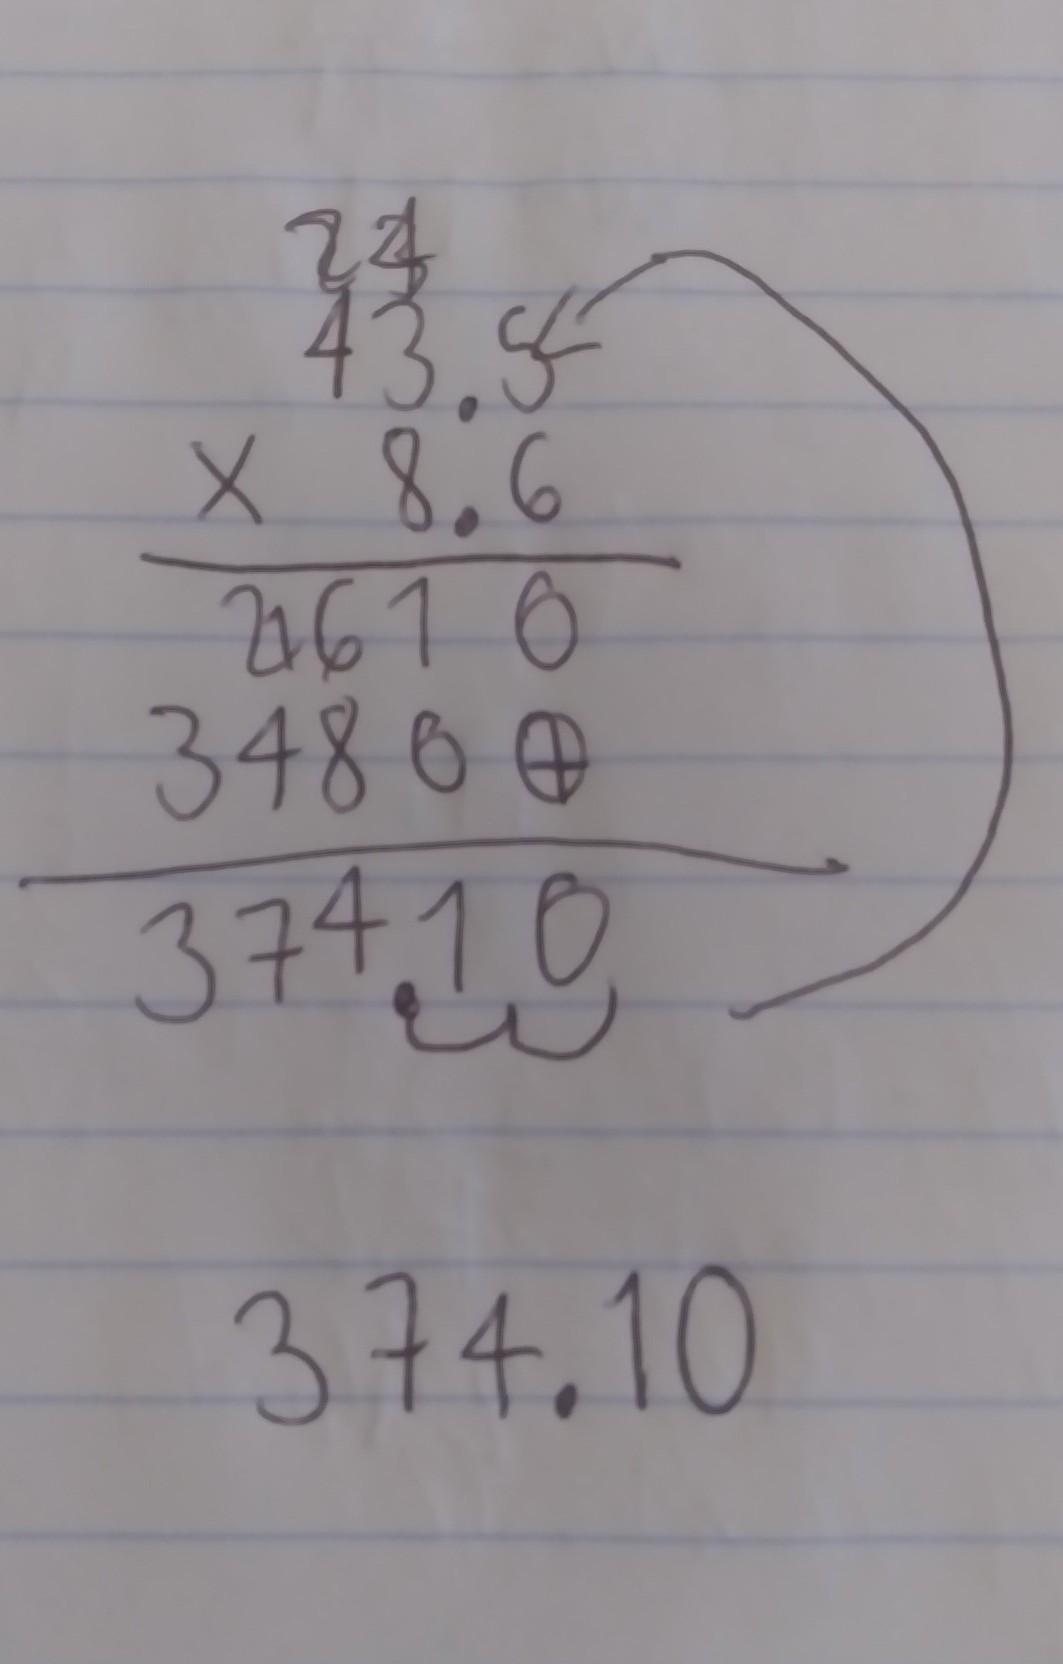 24
43.5
x 8.6
2610
34800
374.10
374.10